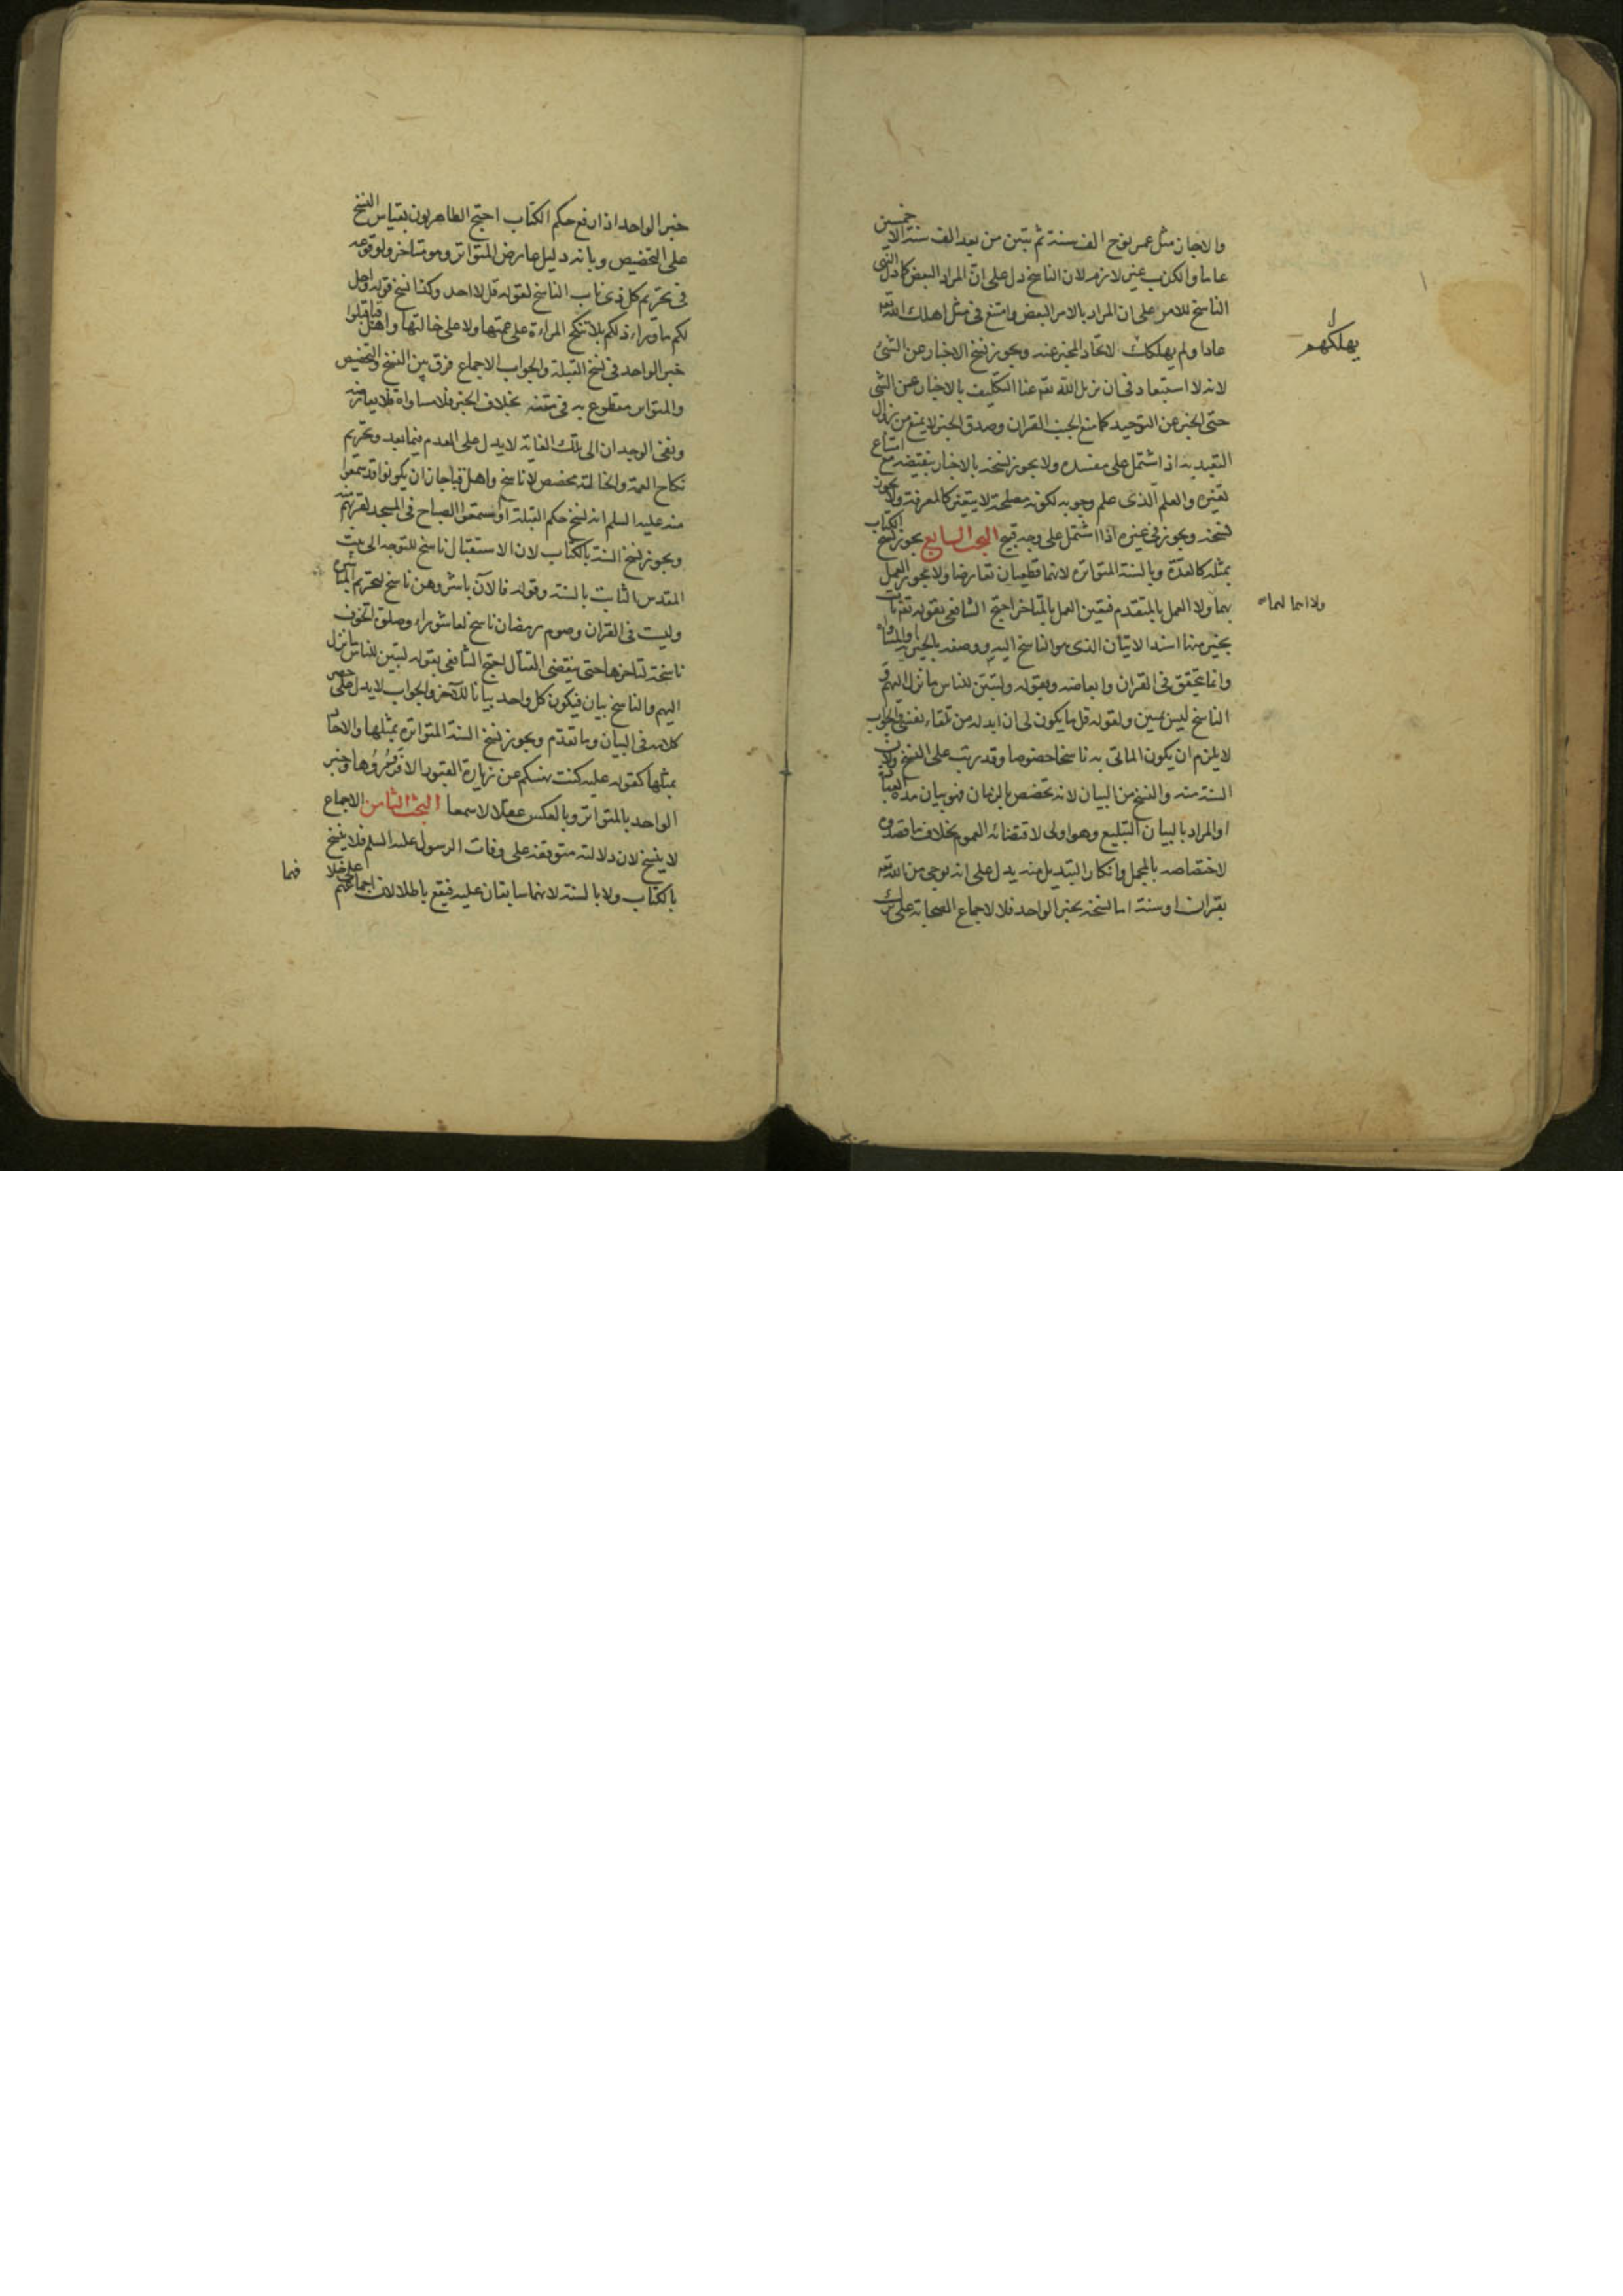 والا جاز مثل عمر نوح الف سنة ثم تبين من بعد الف سنة الا خمسين
عاما والكذب غير لازم لان الناسخ دل على ان المراد البعض كما دل النهى
الناسخ للامر على ان المراد بالامر البعض وامتنع فى مثل اهلك الله تعه
عادا ولم يهلك لاتحاد المخبر عنه ويجوز نسخ الاخبار عن الشئ
لانه لا استبعاد فى ان يزيل الله تعه عنا التكليف بالاخبار عن الشى
حتى الخبر عن التوحيد كما منع الجنب القران وصدق الخبر لا يمنع من زوال
التعبد به اذا اشتمل على مفسده ولا يجوز نسخه بالاخبار بنقيضه مع امتناع
تغيره والعلم الذى علم وجوبه لكونه مصلحة لا يتغير كالمعرفة ولا يجوز
نسخه ويجوز فى غيره اذا اشتمل على وجه قبح البحث السابع يجوز نسخ الكتاب
بمثله كالعدة وبالسنة المتواتره لانهما قطعيان تعارضا ولا يجوز العمل
بهما ولا العمل بالمتقدم فتعين العمل بالمتاخر احتج الشافعى بقوله تعه نات
بخير منها اسند الاتيان الذى هو الناسخ اليه ووصفه بالخيريه او المساواه
وانما يتحقق فى القران وابعاضه وبقوله ولتبين للناس ما نزل اليهم و
الناسخ ليس مبين ولقوله قل ما يكون لى ان ابدله من تلقاء نفسى والجواب
لا يلزم ان يكون الماتى به ناسخا خصوصا وقد رتب على النسخ ولان
السنة منه والنسخ من البيان لانه تخصص بالزمان فهو بيان مدة العبادة
او المراد بالبيان التبليغ وهو اولى لاقتضائه العموم بخلاف ما قصدوه
لاختصاصه بالمجمل وانكار التبديل منه يدل على انه يوحى من الله تعه
بقران او سنة اما نسخه بخبر الواحد فلا لاجماع الصحابة على ترك
يهلكهم
ولا اهما لهما
خبر الواحد اذا رفع حكم الكتاب احتج الظاهريون بقياس النسخ
على التخصيص وبانه دليل عارض المتواتر وهو متاخر ولوقوعه
فى تحريم كل ذى ناب الناسخ لقوله قل لا اجد وكذا نسخ قوله واحل
لكم ما وراء ذلكم بلا تنكح المراءة على عمتها ولا على خالتها واهل قبا قبلوا
خبر الواحد فى نسخ القبلة والجواب الاجماع فرق بين النسخ والتخصيص
والمتواتر مقطوع به فى متنه بخلاف الخبر فلا مساواة فلا يعارضه
ونفى الوجدان الى تلك الغاية لا يدل على العدم فيما بعد وتحريم
نكاح العمة والخالة مخصص لا ناسخ واهل قبا جاز ان يكونوا قد سمعوا
منه عليه السلم انه نسخ حكم القبلة او سمعوا الصياح فى المسجد لقربهم منه
ويجوز نسخ السنة بالكتاب لان الاستقبال ناسخ للتوجه الى بيت
المقدس الثابت بالسنة وقوله فالآن باشروهن ناسخ لتحريم المباشرة
وليست فى القران وصوم رمضان ناسخ لعاشوراء وصلوة الخوف
ناسخة لتاخرها حتى ينقضى القتال احتج الشافعى بقوله لتبين للناس ما نزل
اليهم والناسخ بيان فيكون كل واحد بيانا للآخر والجواب لا يدل على حصر
كلامه فى البيان وما تقدم ويجوز نسخ السنة المتواترة بمثلها والاحاد
بمثلها كقوله عليه كنت نهيتكم عن زيارة القبور الا فزوروها وخبر
الواحد بالمتواتر وبالعكس عقلا لا سمعا البحث الثامن الاجماع
لا ينسخ لان دلالته متوقفة على وفات الرسول عليه السلم فلا ينسخ
بالكتاب ولا بالسنة لانهما سابقان عليه فيقع باطلا لان اجماعهم على خلا
فهما